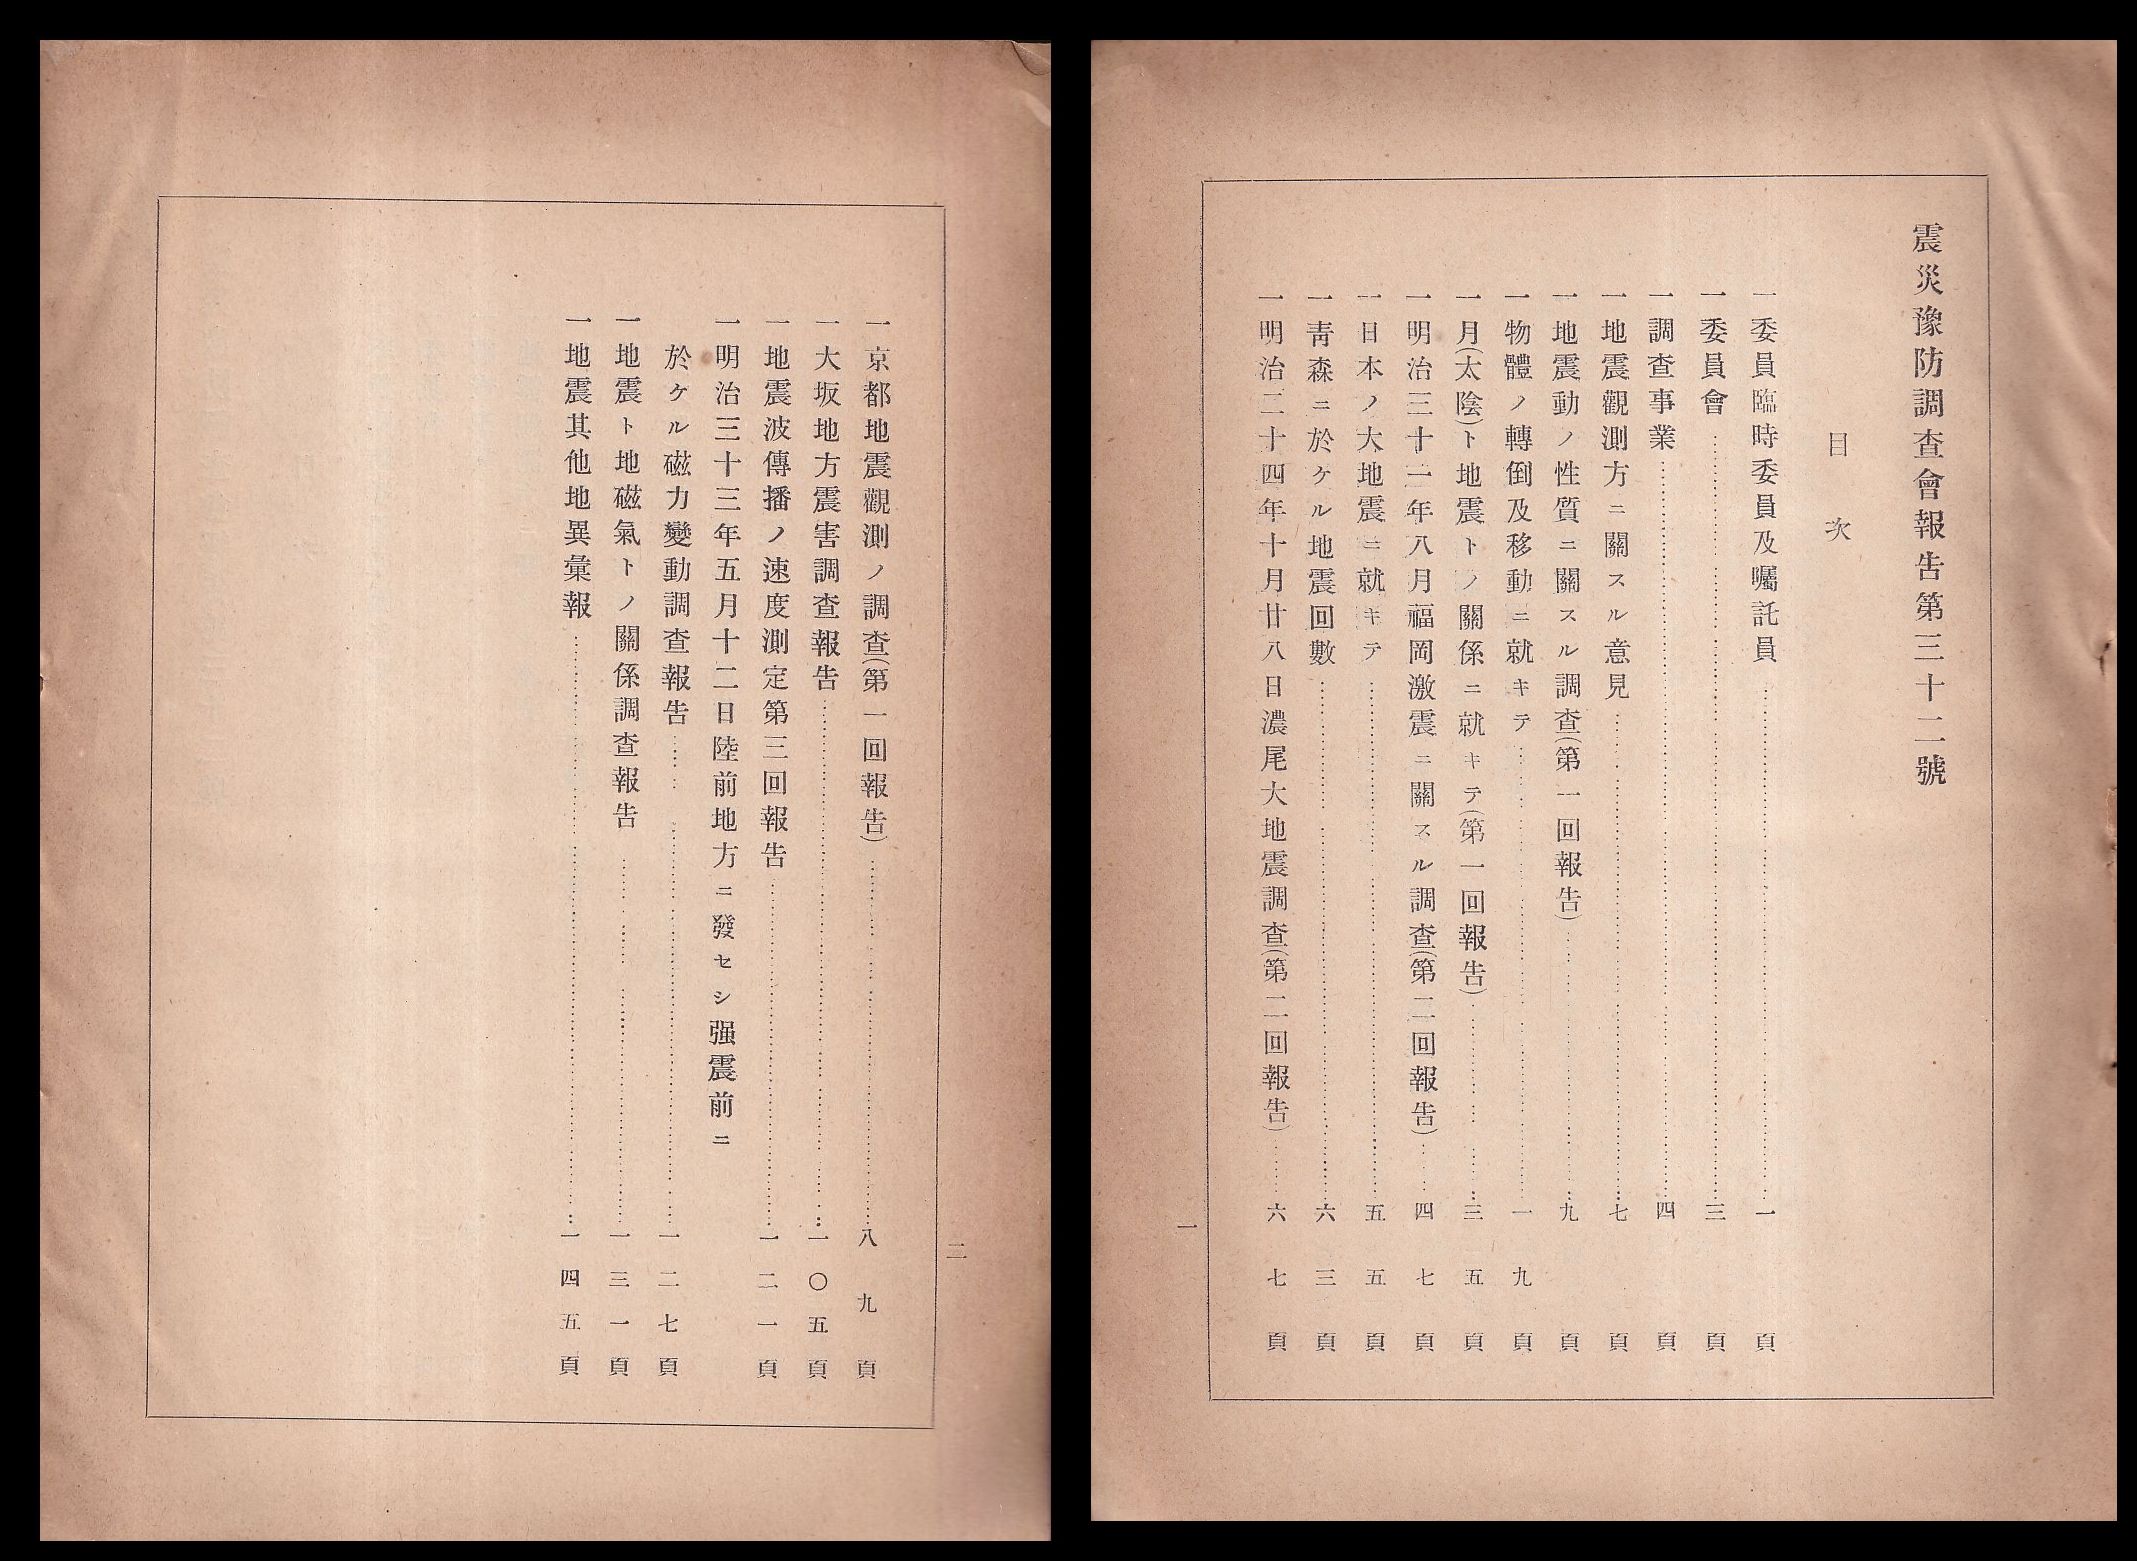 震災豫防調査會報告第三十二號
目次
一委員臨時委員及囑託員……一頁
一委員會……三頁
一調査事業……四頁
一地震觀測方ニ關スル意見……七頁
一地震動ノ性質ニ關スル調査(第一回報告)……九頁
一物體ノ轉倒及移動ニ就キテ……一九頁
一月(太陰)ト地震トノ關係ニ就キテ(第一回報告)……三五頁
一明治三十一年八月福岡激震ニ關スル調査(第二回報告)……四七頁
一日本ノ大地震ニ就キテ……五五頁
一靑森ニ於ケル地震回數……六三頁
一明治二十四年十月廿八日濃尾大地震調査(第二回報告)……六七頁
一
二
一京都地震觀測ノ調査(第一回報告)……八九頁
一大坂地方震害調査報告……一〇五頁
一地震波傳播ノ速度測定第三回報告……一二一頁
一明治三十三年五月十二日陸前地方ニ發セシ强震前ニ
於ケル磁力變動調査報告……一二七頁
一地震ト地磁氣トノ關係調査報告……一三一頁
一地震其他地異彙報……一四五頁